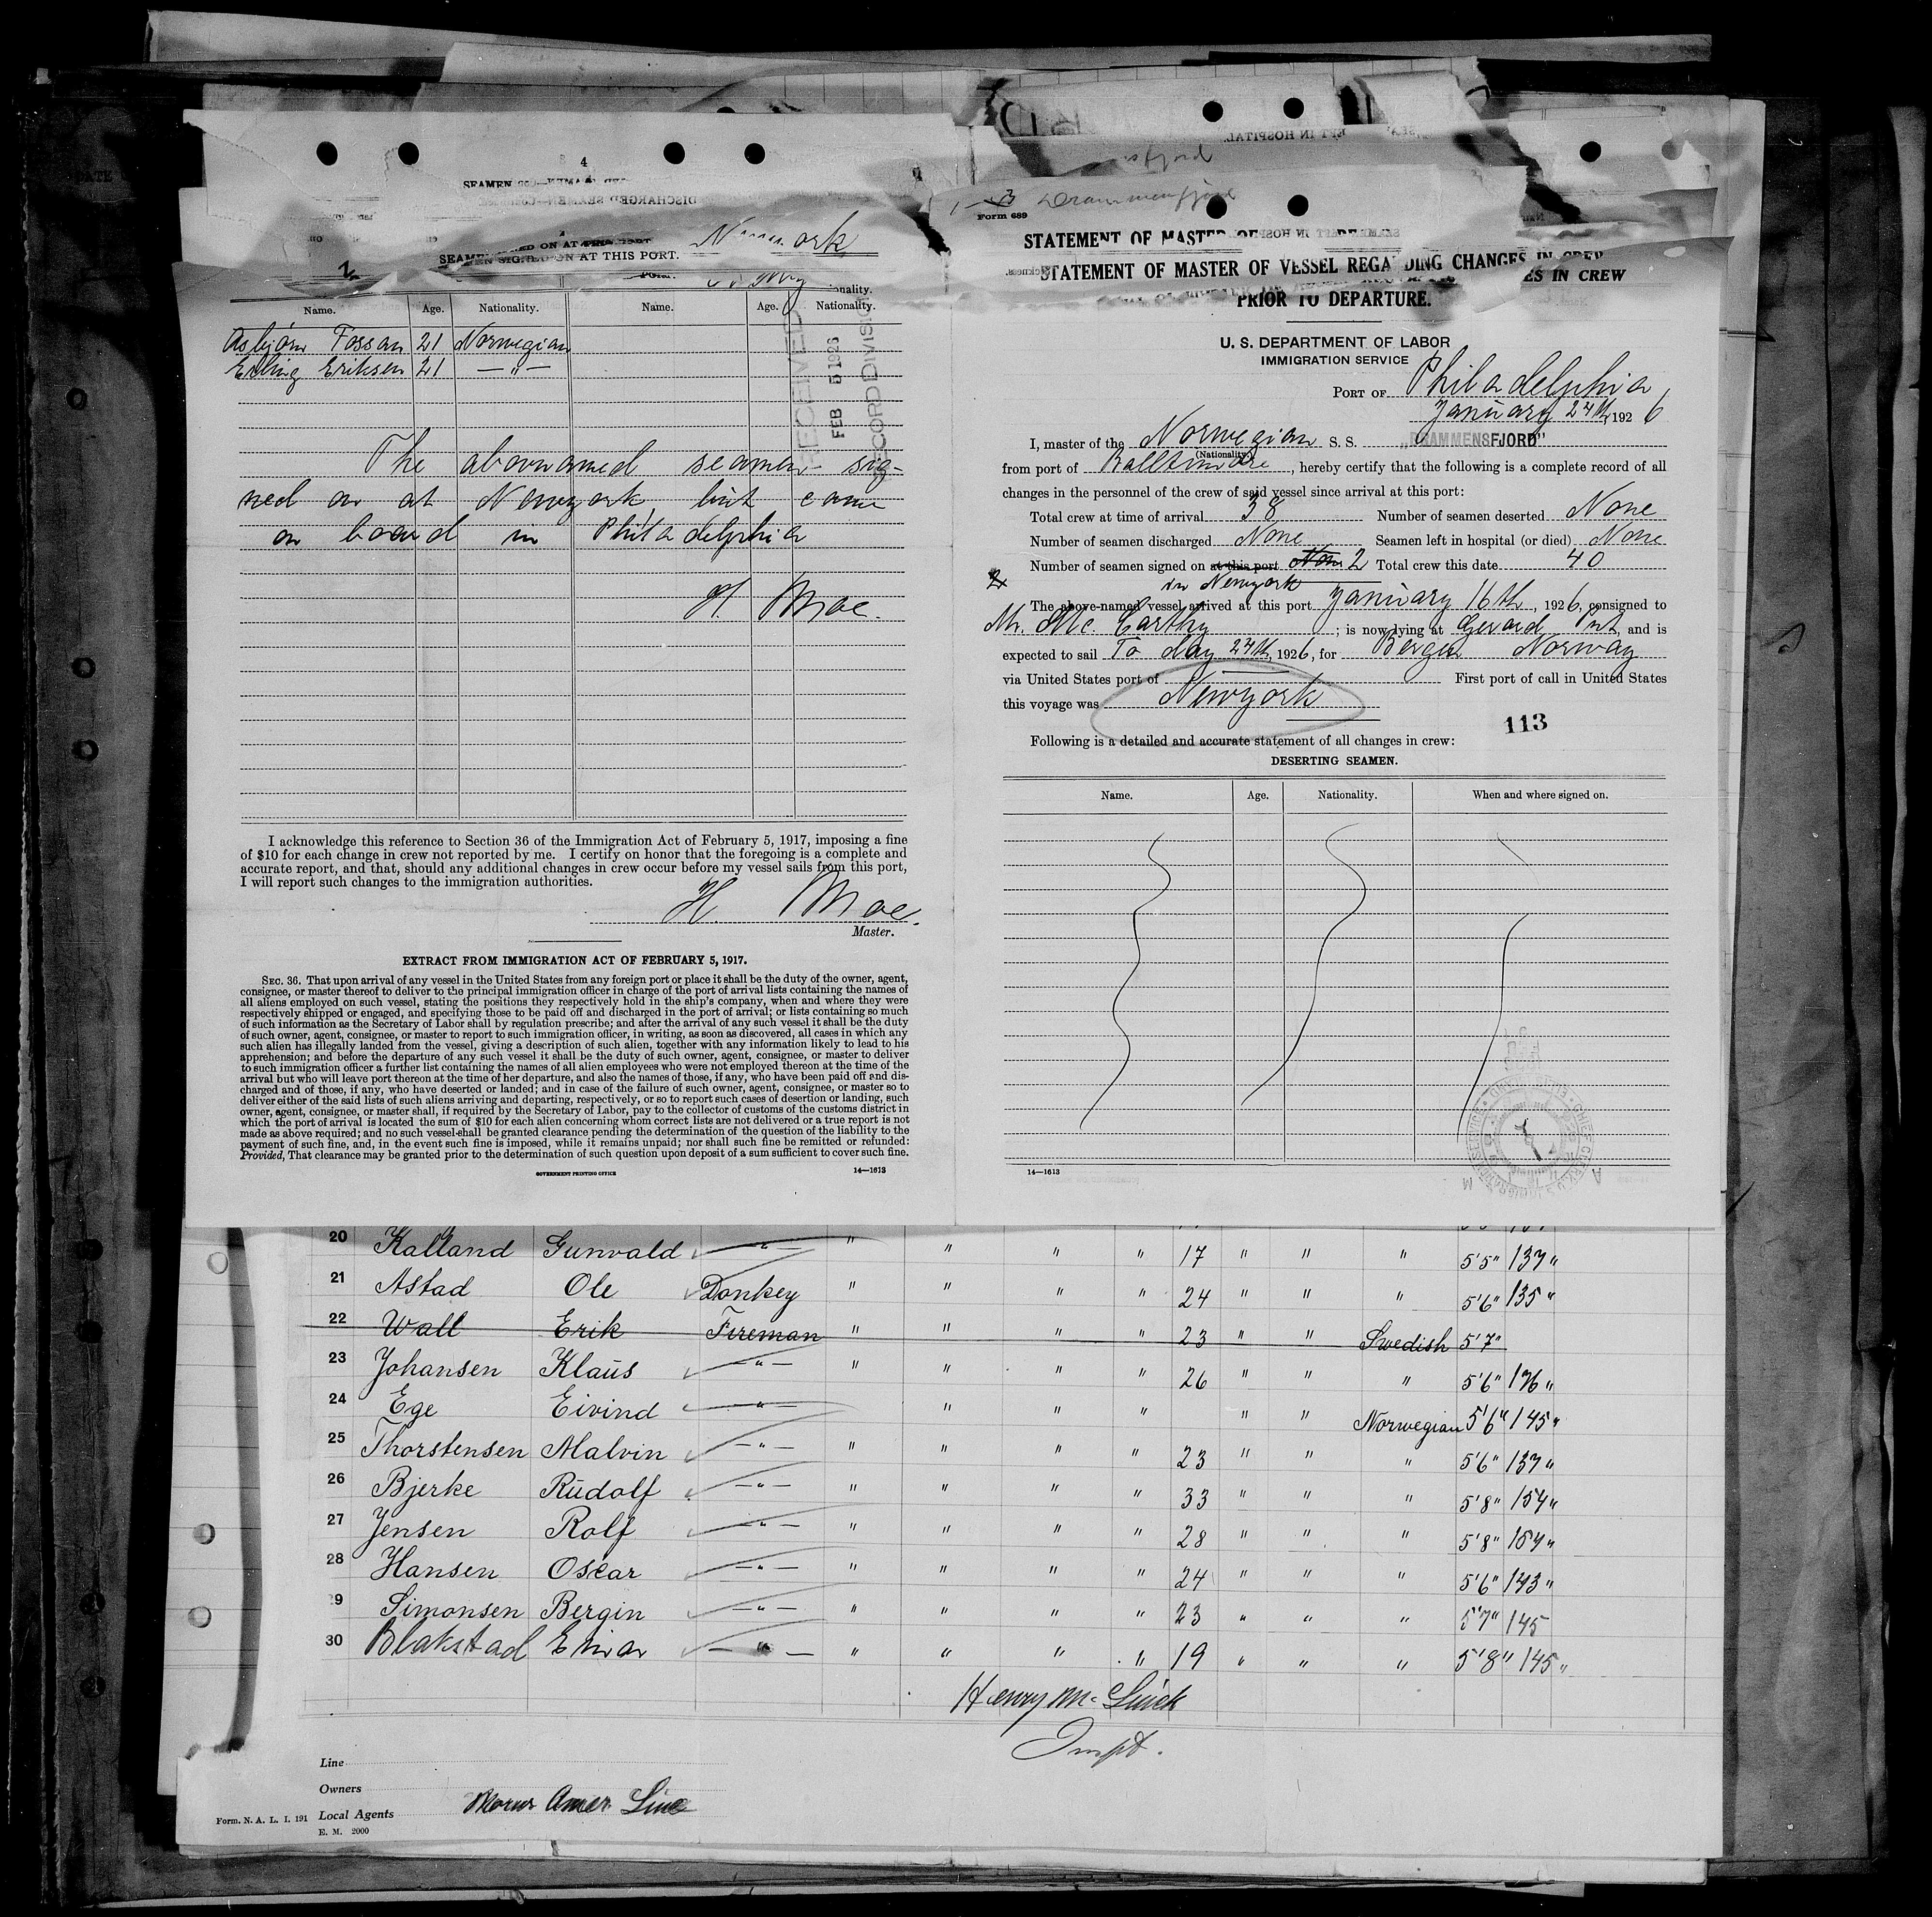 SEAMEN SIGNED ON AT THIS PORT.
Name. Age. Nationality. Name. Age. Nationality.
Asbjörn Fossan 21 Norwegian
Erling Eriksen 21 — " —
RECEIVED
FEB 5 1926
RECORD DIVISION
The abovnamed seamen sig-
ned on at Newyork but came
on board in Philadelphia
H. Moe.
I acknowledge this reference to Section 36 of the Immigration Act of February 5, 1917, imposing a fine
of $10 for each change in crew not reported by me. I certify on honor that the foregoing is a complete and
accurate report, and that, should any additional changes in crew occur before my vessel sails from this port,
I will report such changes to the immigration authorities.
H. Moe.
Master.
EXTRACT FROM IMMIGRATION ACT OF FEBRUARY 5, 1917.
SEC. 36. That upon arrival of any vessel in the United States from any foreign port or place it shall be the duty of the owner, agent,
consignee, or master thereof to deliver to the principal immigration officer in charge of the port of arrival lists containing the names of
all aliens employed on such vessel, stating the positions they respectively hold in the ship's company, when and where they were
respectively shipped or engaged, and specifying those to be paid off and discharged in the port of arrival; or lists containing so much
of such information as the Secretary of Labor shall by regulation prescribe; and after the arrival of any such vessel it shall be the duty
of such owner, agent, consignee, or master to report to such immigration officer, in writing, as soon as discovered, all cases in which any
such alien has illegally landed from the vessel, giving a description of such alien, together with any information likely to lead to his
apprehension; and before the departure of any such vessel it shall be the duty of such owner, agent, consignee, or master to deliver
to such immigration officer a further list containing the names of all alien employees who were not employed thereon at the time of the
arrival but who will leave port thereon at the time of her departure, and also the names of those, if any, who have been paid off and dis-
charged and of those, if any, who have deserted or landed; and in case of the failure of such owner, agent, consignee, or master so to
deliver either of the said lists of such aliens arriving and departing, respectively, or so to report such cases of desertion or landing, such
owner, agent, consignee, or master shall, if required by the Secretary of Labor, pay to the collector of customs of the customs district in
which the port of arrival is located the sum of $10 for each alien concerning whom correct lists are not delivered or a true report is not
made as above required; and no such vessel shall be granted clearance pending the determination of the question of the liability to the
payment of such fine, and, in the event such fine is imposed, while it remains unpaid; nor shall such fine be remitted or refunded:
Provided, That clearance may be granted prior to the determination of such question upon deposit of a sum sufficient to cover such fine.
GOVERNMENT PRINTING OFFICE 14—1613
Drammensfjord
Form 689
STATEMENT OF MASTER OF VESSEL REGARDING CHANGES IN CREW
PRIOR TO DEPARTURE.
U. S. DEPARTMENT OF LABOR
IMMIGRATION SERVICE
PORT OF Philadelphia
January 24th, 1926
I, master of the Norwegian S. S. "DRAMMENSFJORD"
(Nationality)
from port of Balltimore, hereby certify that the following is a complete record of all
changes in the personnel of the crew of said vessel since arrival at this port:
Total crew at time of arrival 38 Number of seamen deserted None
Number of seamen discharged None Seamen left in hospital (or died) None
Number of seamen signed on at this port None 2 Total crew this date 40
in Newyork
The above-named vessel arrived at this port January 16th, 1926, consigned to
Mr. Mc. Carthy; is now lying at Gerard Pnt, and is
expected to sail To day 24th, 1926, for Bergen Norway
via United States port of First port of call in United States
this voyage was Newyork
113
Following is a detailed and accurate statement of all changes in crew:
DESERTING SEAMEN.
Name. Age. Nationality. When and where signed on.
14—1613
20 Kalland Gunvald — " — " " " " 17 " " " 5'5" 137 "
21 Astad Ole Donkey " " " " 24 " " " 5'6" 135 "
22 Wall Erik Fireman " " " " 23 " " Swedish 5'7"
23 Johansen Klaus — " — " " " " 26 " " " 5'6" 136 "
24 Ege Eivind — " — " " " " " Norwegian 5'6" 145 "
25 Thorstensen Malvin — " — " " " " 23 " " " 5'6" 137 "
26 Bjerke Rudolf — " — " " " " 33 " " " 5'8" 154 "
27 Jensen Rolf — " — " " " " 28 " " " 5'8" 154 "
28 Hansen Oscar — " — " " " " 24 " " " 5'6" 143 "
29 Simonsen Bergin — " — " " " " 23 " " " 5'7" 145
30 Blakstad Einar — " — " " " " 19 " " " 5'8" 145 "
Henry Mc
Inspt.
Line
Owners
Form. N. A. L. I. 191 Local Agents Norw Amer Line
E. M. 2000